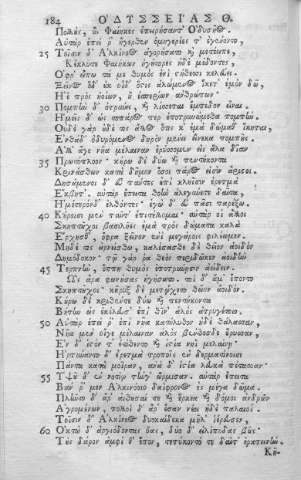 184 ΟΔΥΣΣΕΙΑΣ Θ.
Πολλὺς, ὓς Φαίηκες ἐπειρήσαντ' Ὀδυσῆος.
Αὐτὰρ ἐπεί ῥ' ἤγερθεν ὁμηγερέες τ' ἐγένοντο,
25 Τοῖσιν δ' Ἀλκίνοος ἀγορήσατο καὶ μετέειπε,
Κέκλυτε Φαιήκων ἡγήτορες ἠδὲ μέδοντες,
Ὄφρ' εἴπω τά με θυμὸς ἐνὶ στήθεσσι κελεύει.
Ξεῖνος ὅδ' ἐκ οἶδ' ὅςτις ἀλώμενος ἵκετ' ἐμὸν δῶ,
Ἠὲ πρὸς ἠοίων, ἢ ἑσπερίων ἀνθρώπων·
30 Πομπὴν δ' ὀτρύνει, καὶ λίσσεται ἔμπεδον εἶναι.
Ἡμεῖς δ' ὡς τοπάρος περ ἐποτρυνώμεθα πομπήν.
Οὐδὲ γὰρ ἐδέ τις ἄλλος ὅτις κ' ἐμὰ δώμαθ' ἵκηται,
Ἐνθάδ' ὀδυρόμενος δηρὸν μένει εἵνεκα πομπῆς.
Ἀλλ' ἄγε νῆα μέλαιναν ἐρύσσομεν εἰς ἅλα δῖαν
35 Πρωτόπλοον· κούρω δὲ δύω καὶ πεντήκοντα
Κρινάσθων κατὰ δῆμον ὅσοι πάρος εἰσὶν ἄριστοι.
Δησάμενοι δ' εὖ πάντες ἐπὶ κληῖσιν ἐρετμὰ
Ἔκβητ'. αὐτὰρ ἔπειτα θοὴν ἀλεγύνετε δαῖτα,
Ἡμέτερόνδ' ἐλθόντες· ἐγὼ δ' εὖ πᾶσι παρέξω.
40 Κέροισι μὲν ταῦτ' ἐπιτέλλομαι· αὐτὰρ οἱ ἄλλοι
Σκηπτοῦχοι βασιλῆες ἐμὰ πρὸς δώματα καλὰ
Ἔρχεσθ', ὄφρα ξεῖνον ἐνὶ μεγάροισι φιλέωμεν·
Μηδέ τις ἀρνείσθω, καλέσασθε δὲ θεῖον ἀοιδὸν
Δημόδοκον· τῷ γάρ ῥα θεὸς περὶ δῶκεν ἀοιδὴν
45 Τέρπειν, ὅππη θυμὸς ἐποτρύνῃσιν ἀείδειν.
Ὣς ἄρα φωνήσας ἡγήσατο. τοὶ δ' ἅμ' ἕποντο
Σκηπτοῦχοι· κῆρυξ δὲ μετῴχετο θεῖον ἀοιδόν.
Κούρω δὲ κρινθέντε δύω καὶ πεντήκοντα
Βήτην ὡς ἐκέλευσ' ἐπὶ θῖν' ἁλὸς ἀτρυγέτοιο.
50 Αὐτὰρ ἐπεί ῥ' ἐπὶ νῆα κατήλυθον ἠδὲ θάλασσαν,
Νῆα μὲν οἵγε μέλαιναν ἁλὸς βένθοσδε ἔρυσσαν·
Ἐν δ' ἱστόν τ' ἐτίθεντο καὶ ἱστία νηῒ μελαίνῃ·
Ἠρτύναντο δ' ἐρετμὰ τροποῖς ἐν δερματίνοισι
Πάντα κατὰ μοῖραν, ἀνὰ δ' ἱστία λευκὰ πέτασσαν·
55 Ὑψοῦ δ' ἐν νοτίῳ τήνγ' ὥρμισαν. αὐτὰρ ἔπειτα
Βάν ῥ' ἴμεν Ἀλκινόοιο δαΐφρονος ἐς μέγα δῶμα.
Πλῆντο δ' ἄρ' αἴθουσαί τε καὶ ἕρκεα καὶ δόμοι ἀνδρῶν
Ἀγρομένων, πολλοὶ δ' ἄρ' ἔσαν νέοι ἠδὲ παλαιοί.
Τοῖσιν δ' Ἀλκίνοος δυοκαίδεκα μῆλ' ἱέρευσεν,
60 Ὀκτὼ δ' ἀργιόδοντας ὕας, δύο δ' εἰλίποδας βῦς·
Τὺς δέρον ἀμφί θ' ἕπον, τετύκοντό τε δαῖτ' ἐρατεινήν.
Κῆ-